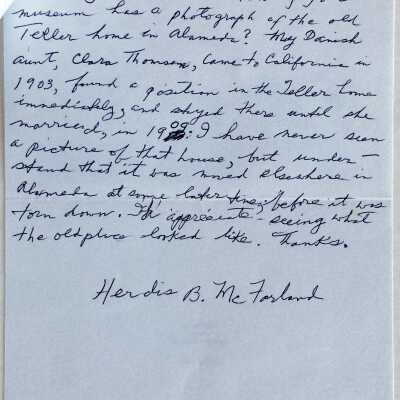 museum has a photograph of the old
Teller home in Alameda? My Danish
aunt, Clara Thomsen, came to California in
1903, found a position in the Teller home
immediately, and stayed there until she
married, in 19 I have never seen
a picture of that house, but under-
stand that it was moved elsewhere in
Alameda at some later time, before it was
torn down. I'd appreciate seeing what
the old place looked like. Thanks.
Herdis B. McFarland